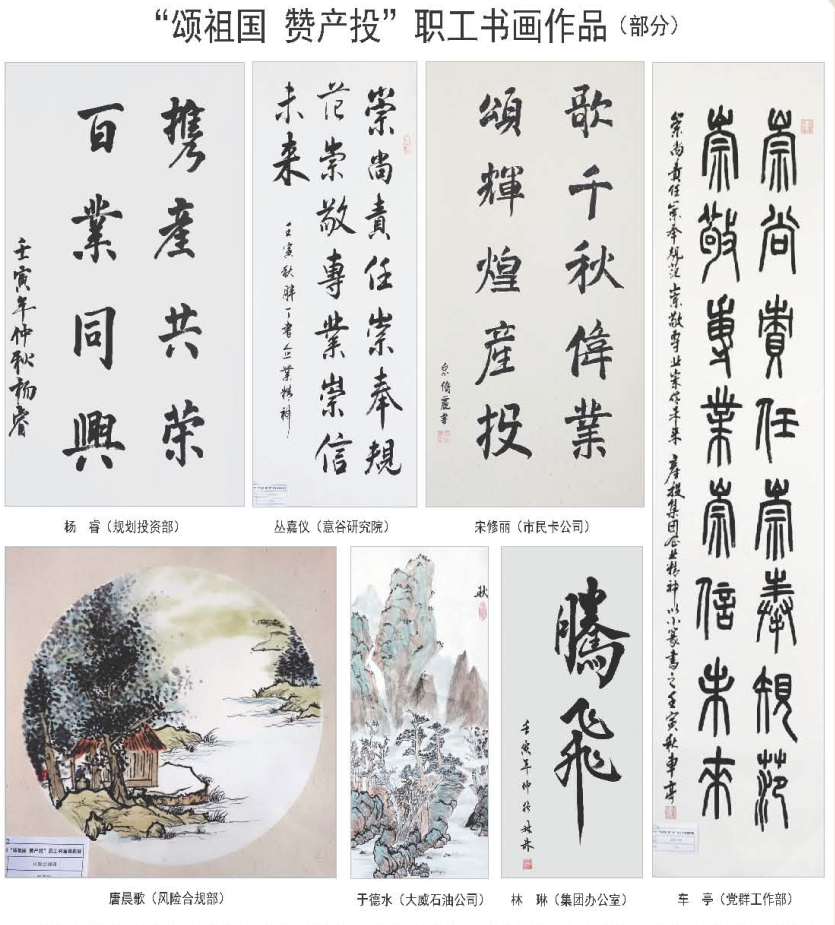 “颂祖国 赞产投”职工书画作品（部分）
携產共荣
百業同興
壬寅年仲秋杨睿
崇尚責任崇奉規
范崇敬專業崇信
未来
壬寅秋
書企業精神
歌千秋偉業
頌輝煌產投
崇尚責任崇奉規范
崇敬專業崇信未来
崇尚責任崇奉規范崇敬專业崇信未来 產投集团企业精神以小篆書之壬寅秋車亭
杨　睿（规划投资部）
丛嘉仪（意谷研究院）
宋修丽（市民卡公司）
秋
騰飞
壬寅年仲秋林琳
“颂祖国 赞产投”职工书画摄影展
唐晨歌（风险合规部）
于德水（大威石油公司）
林　琳（集团办公室）
车　亭（党群工作部）